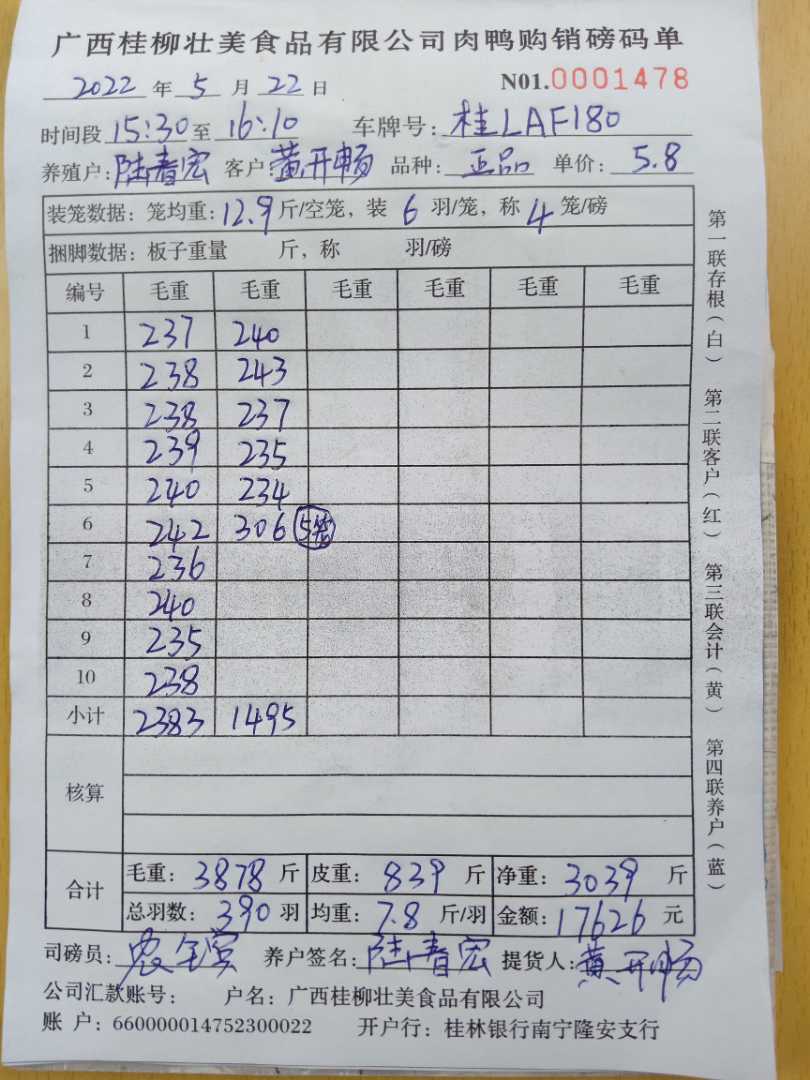 广西桂柳壮美食品有限公司肉鸭购销磅码单
2022 年 5 月 22 日 N01.0001478
时间段 15:30 至 16:10 车牌号: 桂LAF180
养殖户: 陆春宏 客户: 黄开畅 品种: 正品 单价: 5.8
装笼数据: 笼均重: 12.9 斤/空笼, 装 6 羽/笼, 称 4 笼/磅
捆脚数据: 板子重量 斤, 称 羽/磅
编号 毛重 毛重 毛重 毛重 毛重 毛重
1 237 240
2 238 243
3 238 237
4 239 235
5 240 234
6 242 306 5笼
7 236
8 240
9 235
10 238
小计 2383 1495
核算
合计 毛重: 3878 斤 皮重: 839 斤 净重: 3039 斤
总羽数: 390 羽 均重: 7.8 斤/羽 金额: 17626 元
司磅员: 养户签名: 陆春宏 提货人: 黄开畅
公司汇款账号: 户名: 广西桂柳壮美食品有限公司
账 户: 660000014752300022 开户行: 桂林银行南宁隆安支行
第一联存根(白) 第二联客户(红) 第三联会计(黄) 第四联养户(蓝)